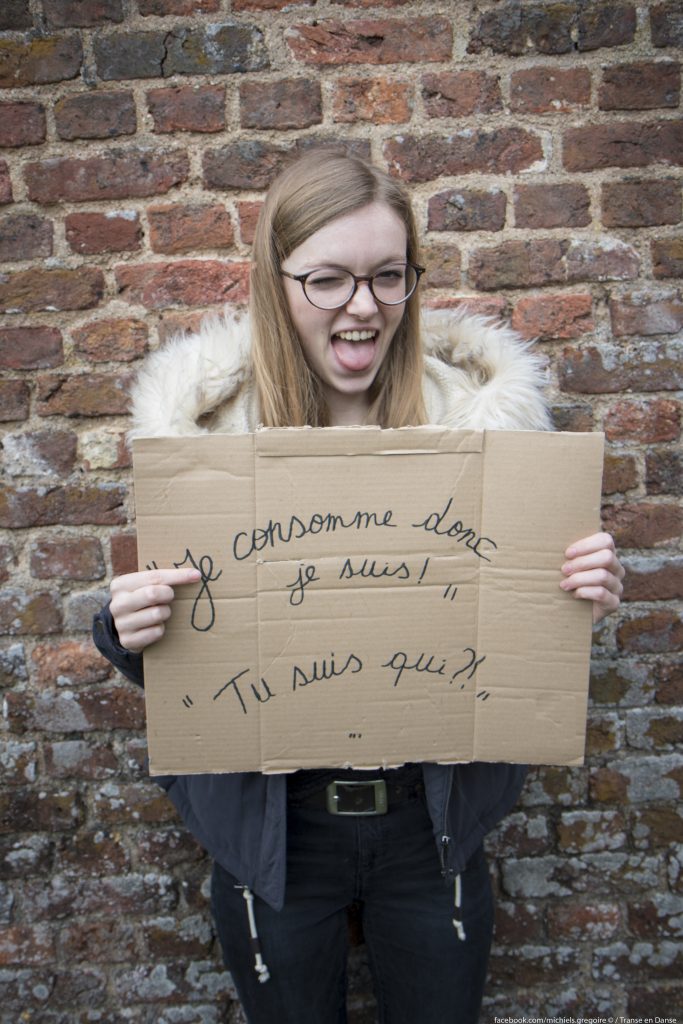 "Je consomme donc
je suis!"
"Tu suis qui?!"
...
facebook.com/michiels.gregoire © / Transe en Danse